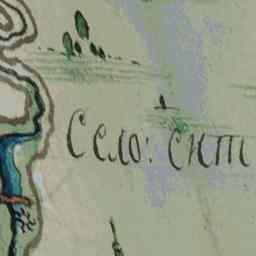 Село: скт